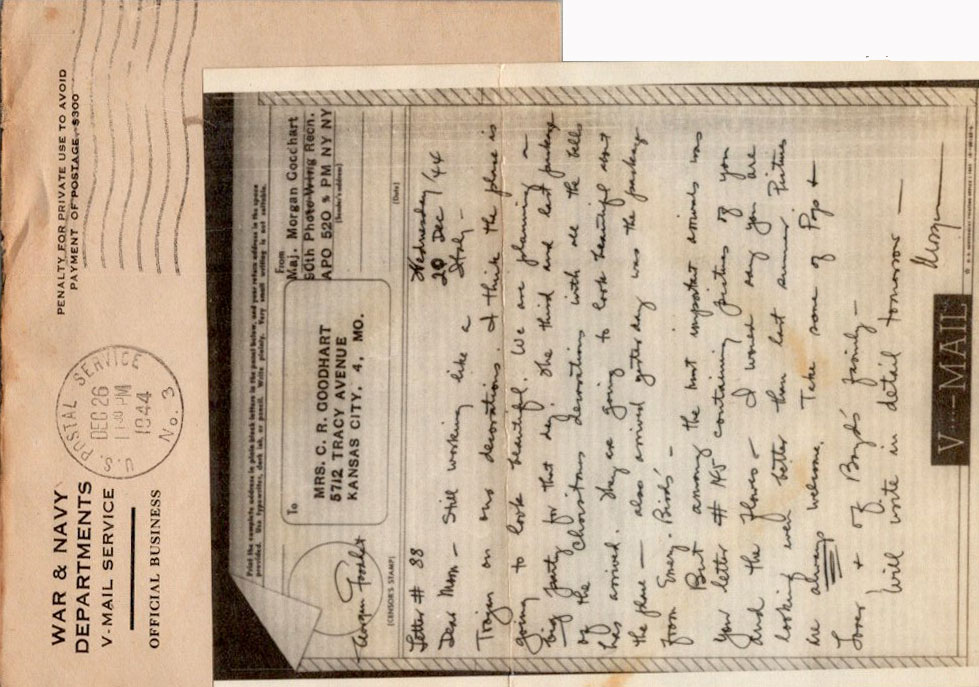 WAR & NAVY
DEPARTMENTS
V-MAIL SERVICE
OFFICIAL BUSINESS
U.S. POSTAL SERVICE
DEC 26
PM
1944
No. 3
PENALTY FOR PRIVATE USE TO AVOID
PAYMENT OF POSTAGE, $300
Print the complete address in plain block letters in the panel below, and your return address in the space
provided. Use typewriter, dark ink, or pencil. Write plainly. Very small writing is not suitable.
To
MRS. C. R. GOODHART
5712 TRACY AVENUE
KANSAS CITY, 4, MO.
From
Maj. Morgan Goodhart
90th Photo Wing Recn.
APO 520 % PM NY NY
(Sender's address)
(Date)
(CENSOR'S STAMP)
Letter # 88
Wednesday
20 Dec '44
Italy -
Dear Mom - Still working like a
Trojan on our decorations. I think the place is
going to look beautiful. We are planning a
big party for that day. The third and last package
of the Christmas decorations with all the bells
has arrived. They are going to look beautiful about
the place - also arrived yesterday was the package
from Emery, Bird's -
But among the most important arrivals was
your letter # 145 containing pictures of you
and the flowers - I would say you are
looking even better than last summer. Pictures
are always welcome. Take some of Pops &
Lover & of Boyd's family -
Will write in detail tomorrow -
V - MAIL